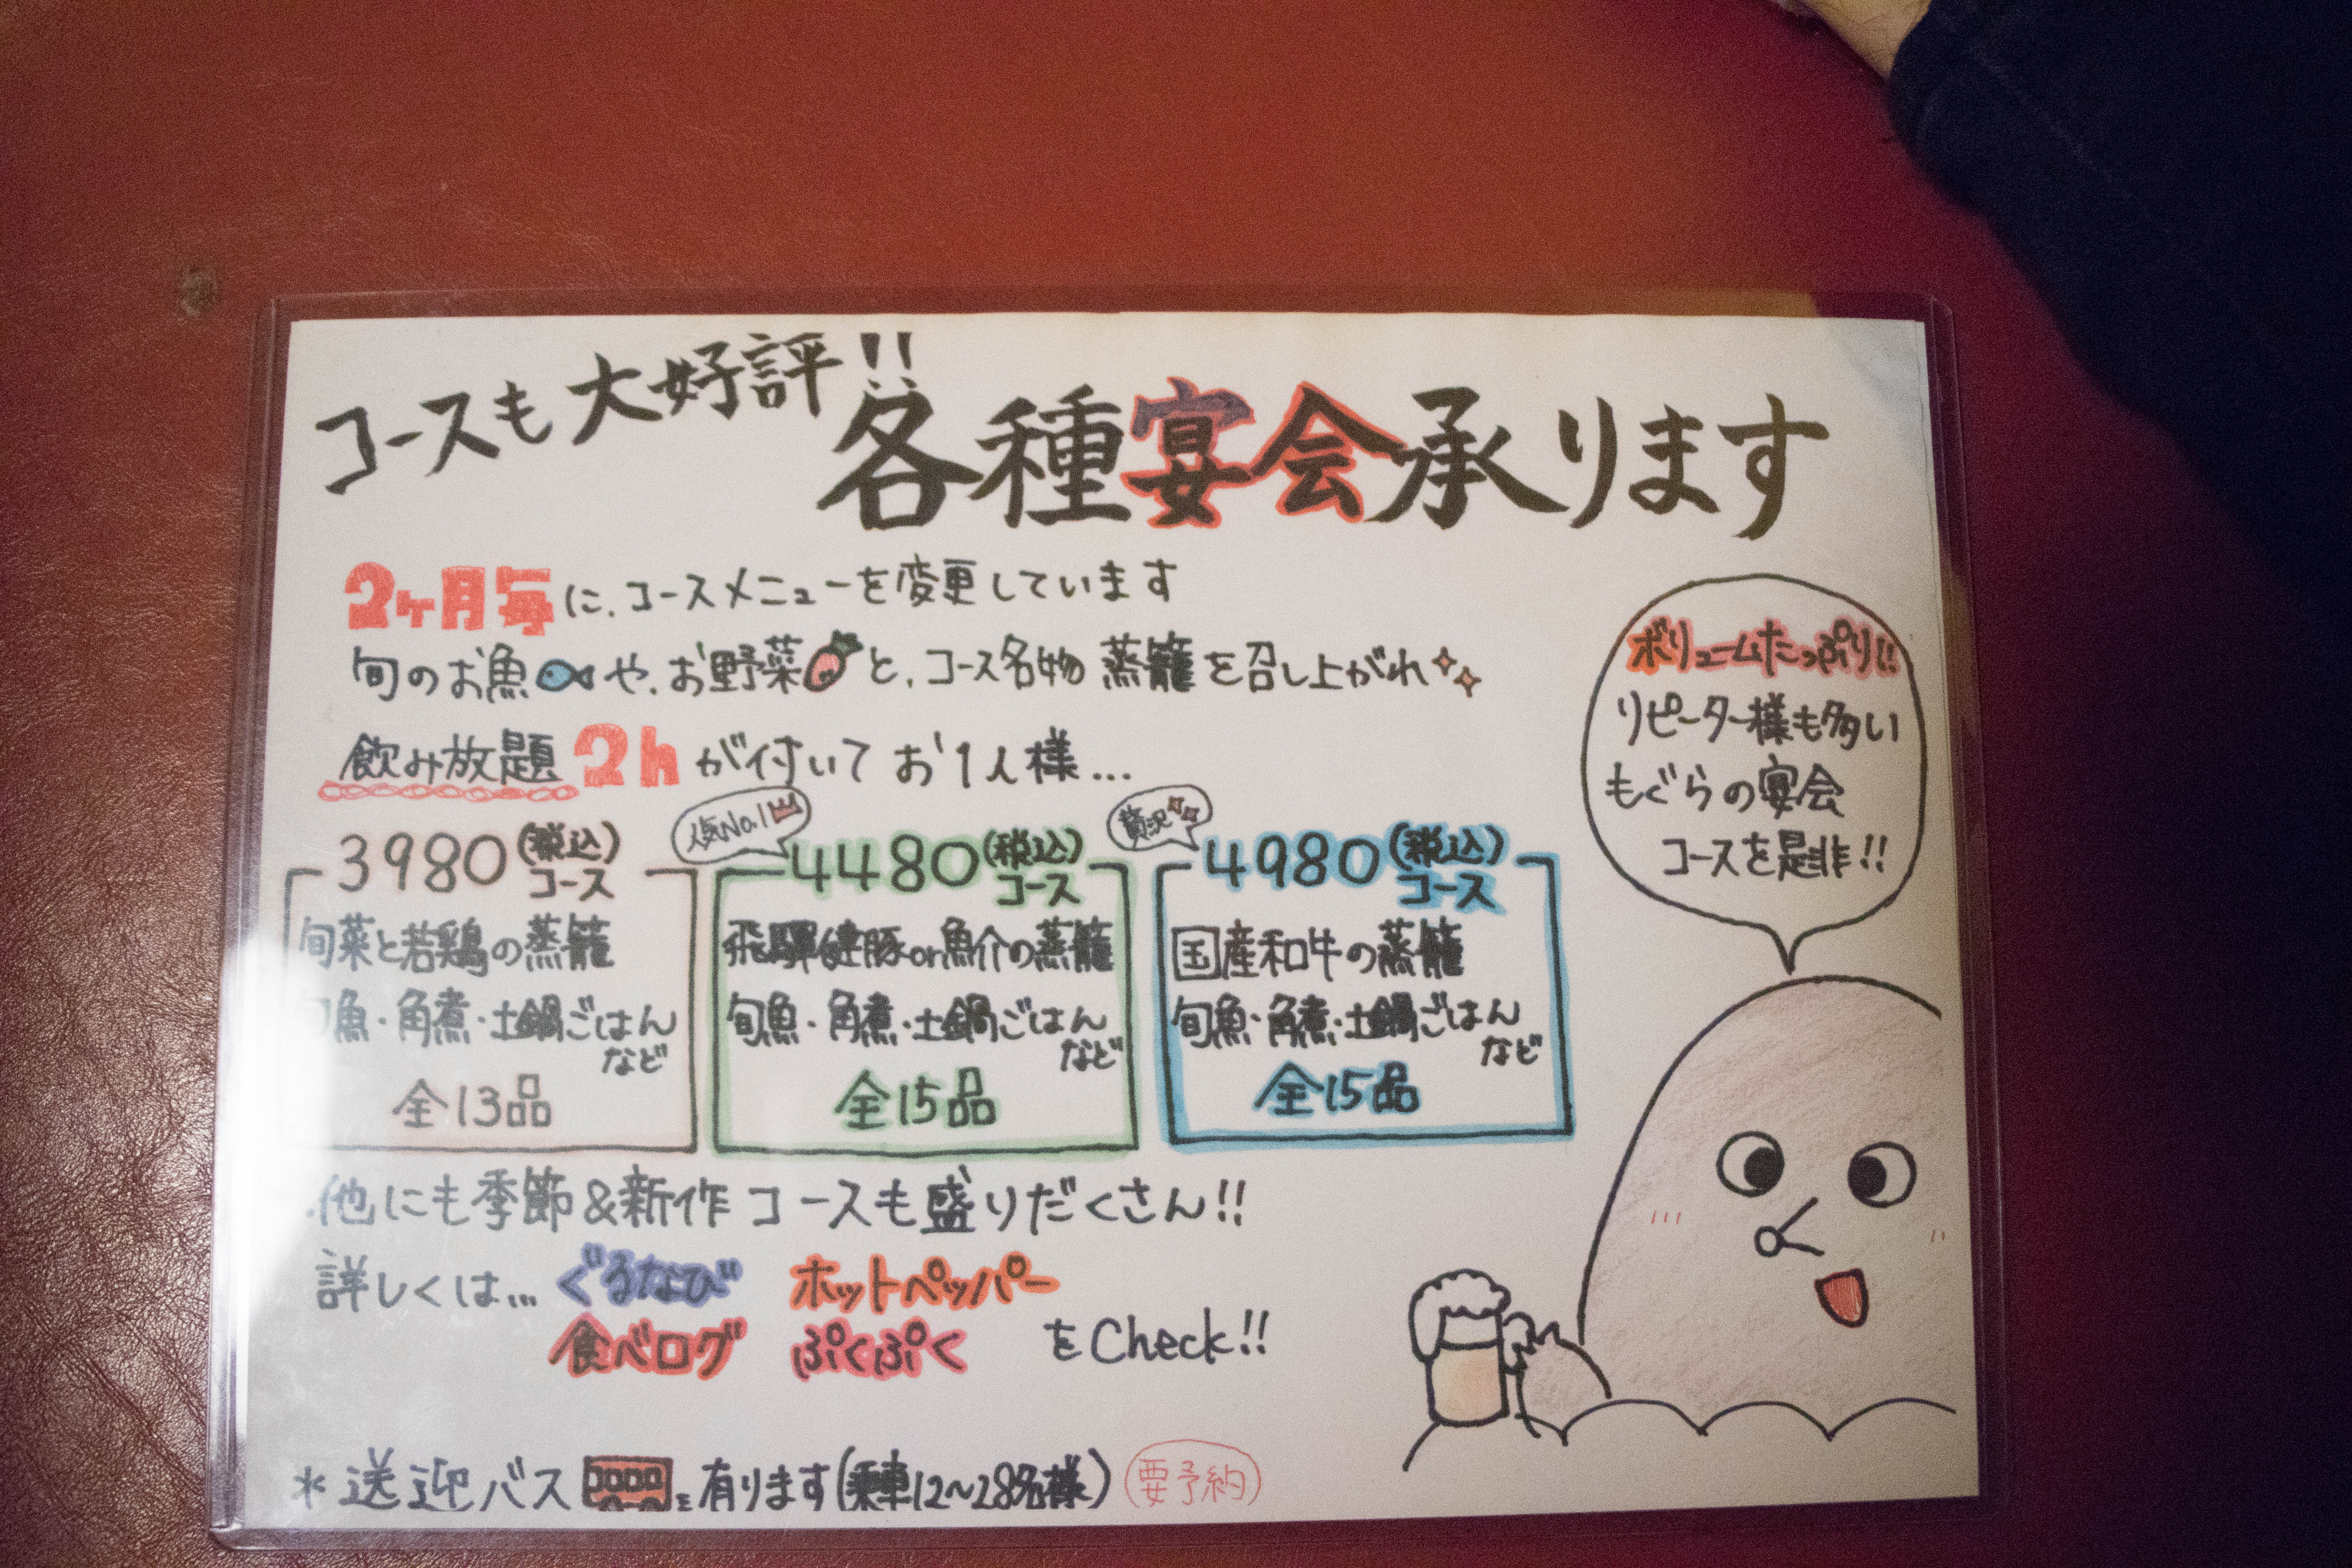 コースも大好評!!
各種宴会承ります
2ヶ月毎に、コースメニューを変更しています
旬のお魚や、お野菜と、コース名物 蒸籠を召し上がれ
飲み放題2hが付いてお1人様…
3980(税込)コース
旬菜と若鶏の蒸籠
旬魚・角煮・土鍋ごはん
など
全13品
人気No.1
4480(税込)コース
飛騨健豚or魚介の蒸籠
旬魚・角煮・土鍋ごはん
など
全15品
贅沢
4980(税込)コース
国産和牛の蒸籠
旬魚・角煮・土鍋ごはん
など
全15品
ボリュームたっぷり!!
リピーター様も多い
もぐらの宴会
コースを是非!!
他にも季節&新作コースも盛りだくさん!!
詳しくは… ぐるなび ホットペッパー
食べログ ぷくぷく をCheck!!
*送迎バス 有ります(乗車12~28名様) 要予約